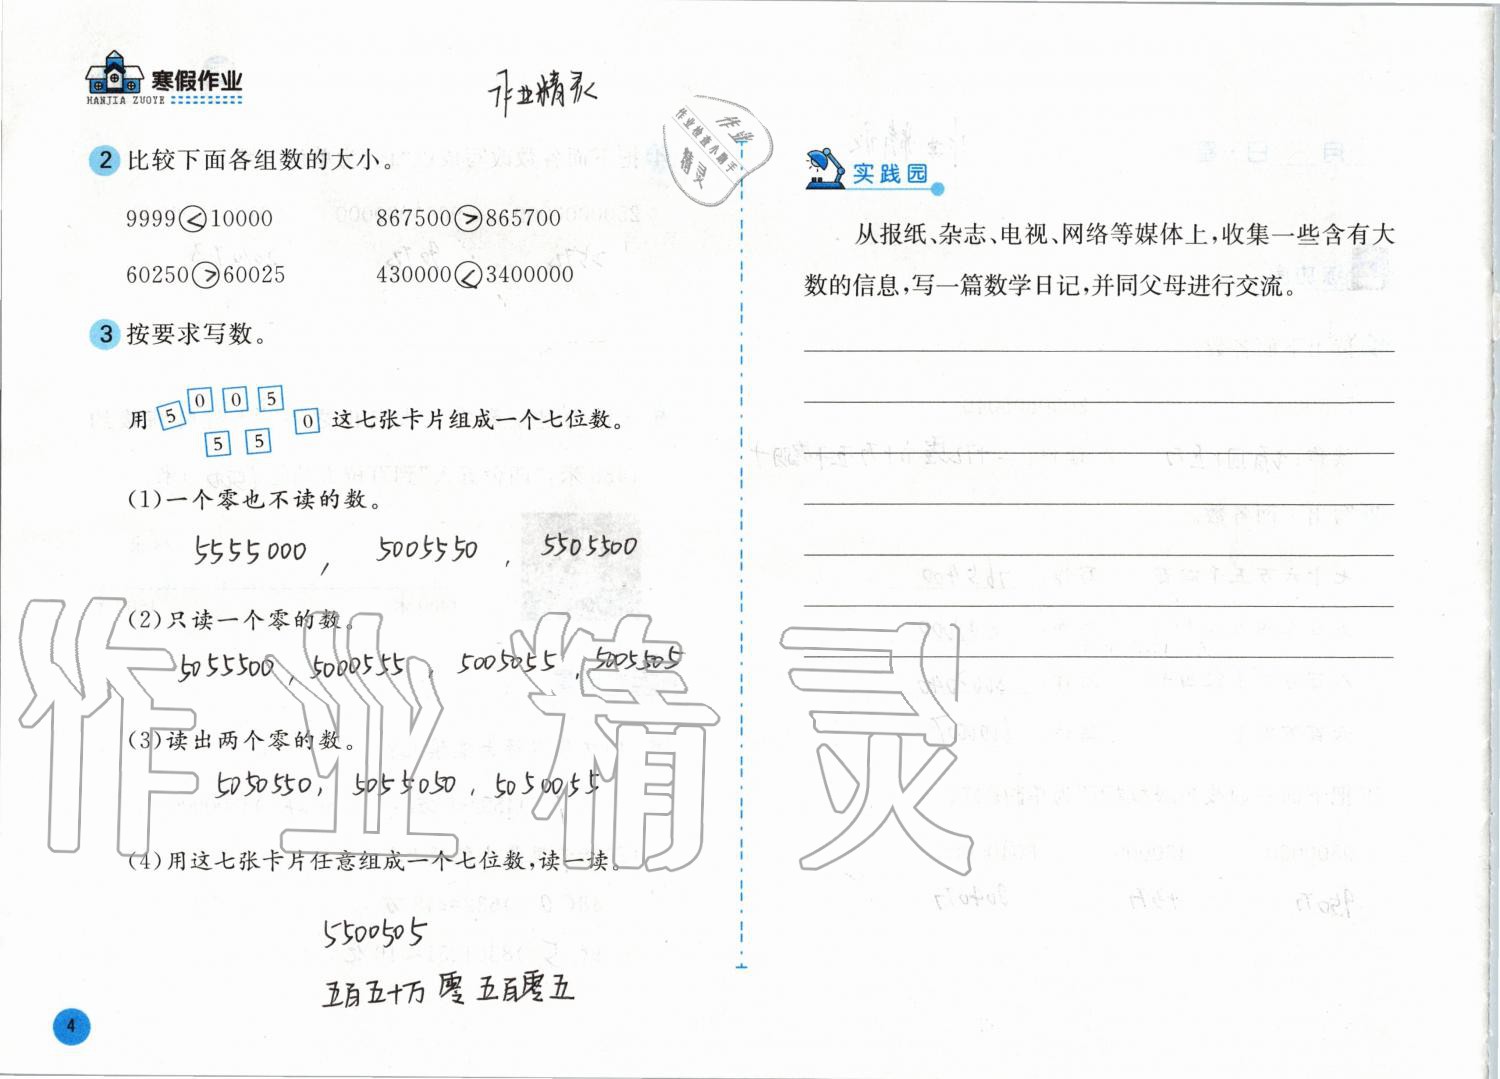 寒假作业
HANJIA ZUOYE
作业精灵
作业
作业检查小助手
精灵
2 比较下面各组数的大小。
9999<10000 867500>865700
60250>60025 430000<3400000
3 按要求写数。
用 5 0 0 5 0 5 5 这七张卡片组成一个七位数。
(1)一个零也不读的数。
5555000, 5005550, 5505500
(2)只读一个零的数。
5055500, 5000555, 5005055, 5005505
(3)读出两个零的数。
5050550, 5055050, 5050055
(4)用这七张卡片任意组成一个七位数,读一读。
5500505
五百五十万零五百零五
4
实践园
从报纸、杂志、电视、网络等媒体上,收集一些含有大
数的信息,写一篇数学日记,并同父母进行交流。
作业精灵